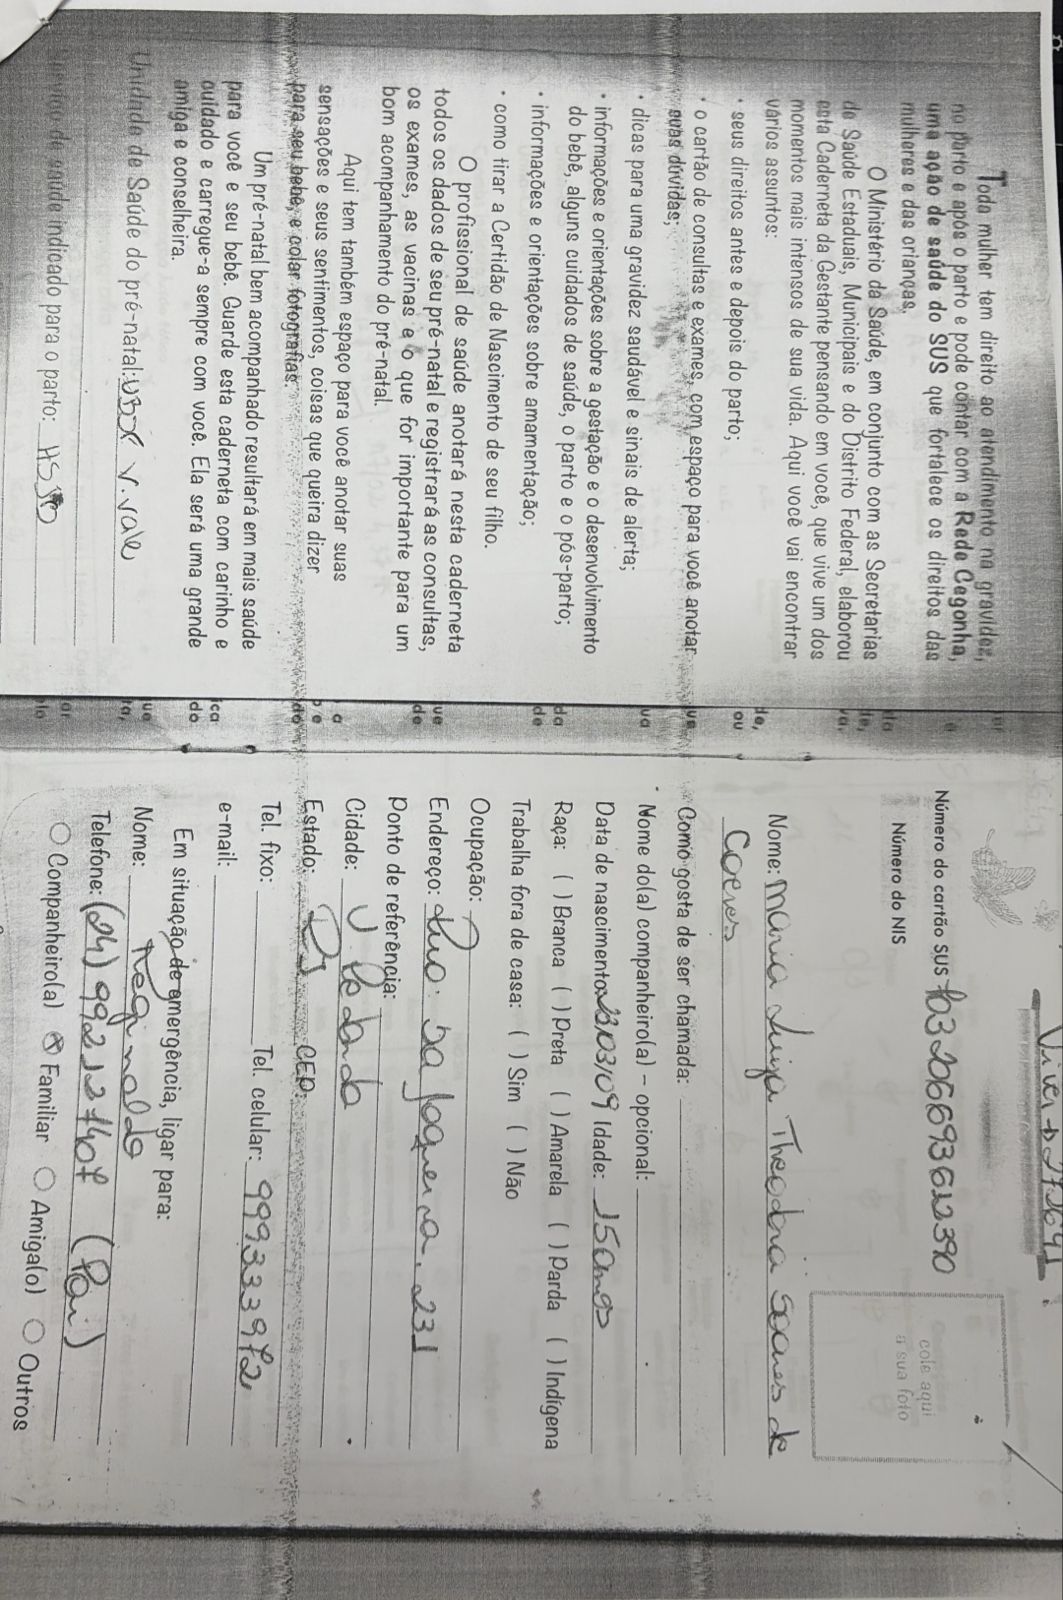 Toda mulher tem direito ao atendimento na gravidez,
no parto e após o parto e pode contar com a Rede Cegonha,
uma ação de saúde do SUS que fortalece os direitos das
mulheres e das crianças.
O Ministério da Saúde, em conjunto com as Secretarias
de Saúde Estaduais, Municipais e do Distrito Federal, elaborou
esta Caderneta da Gestante pensando em você, que vive um dos
momentos mais intensos de sua vida. Aqui você vai encontrar
vários assuntos:
• seus direitos antes e depois do parto;
• o cartão de consultas e exames, com espaço para você anotar
suas dúvidas;
• dicas para uma gravidez saudável e sinais de alerta;
• informações e orientações sobre a gestação e o desenvolvimento
do bebê, alguns cuidados de saúde, o parto e o pós-parto;
• informações e orientações sobre amamentação;
• como tirar a Certidão de Nascimento de seu filho.
O profissional de saúde anotará nesta caderneta
todos os dados de seu pré-natal e registrará as consultas,
os exames, as vacinas e o que for importante para um
bom acompanhamento do pré-natal.
Aqui tem também espaço para você anotar suas
sensações e seus sentimentos, coisas que queira dizer
para seu bebê, e colar fotografias.
Um pré-natal bem acompanhado resultará em mais saúde
para você e seu bebê. Guarde esta caderneta com carinho e
cuidado e carregue-a sempre com você. Ela será uma grande
amiga e conselheira.
Unidade de Saúde do pré-natal: UBS V. Vale
de saúde indicado para o parto: HSJB
cole aqui
a sua foto
Número do cartão SUS 703206693612390
Número do NIS
Nome: Maria Luiza Theodora Soares de
Como gosta de ser chamada:
Nome do(a) companheiro(a) – opcional:
Data de nascimento: 23/03/09 Idade: 15 anos
Raça: ( ) Branca ( ) Preta ( ) Amarela ( ) Parda ( ) Indígena
Trabalha fora de casa: ( ) Sim ( ) Não
Ocupação:
Endereço: Rua: 231
Ponto de referência:
Cidade: V. Redonda
Estado: RJ CEP:
Tel. fixo: Tel. celular: 999333972
e-mail:
Em situação de emergência, ligar para:
Nome: Reginaldo
Telefone: (24) 992127407 (Pai)
Companheiro(a) Familiar Amiga(o) Outros